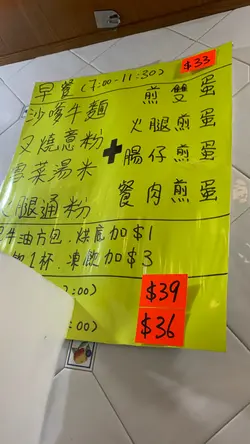 早餐 (7:00-11:30) $33
沙嗲牛麵 煎雙蛋
叉燒意粉 + 火腿煎蛋
菜湯米 腸仔煎蛋
腿通粉 餐肉煎蛋
牛油方包．烘底加$1
1杯．凍飲加$3
:00) $39
:00) $36